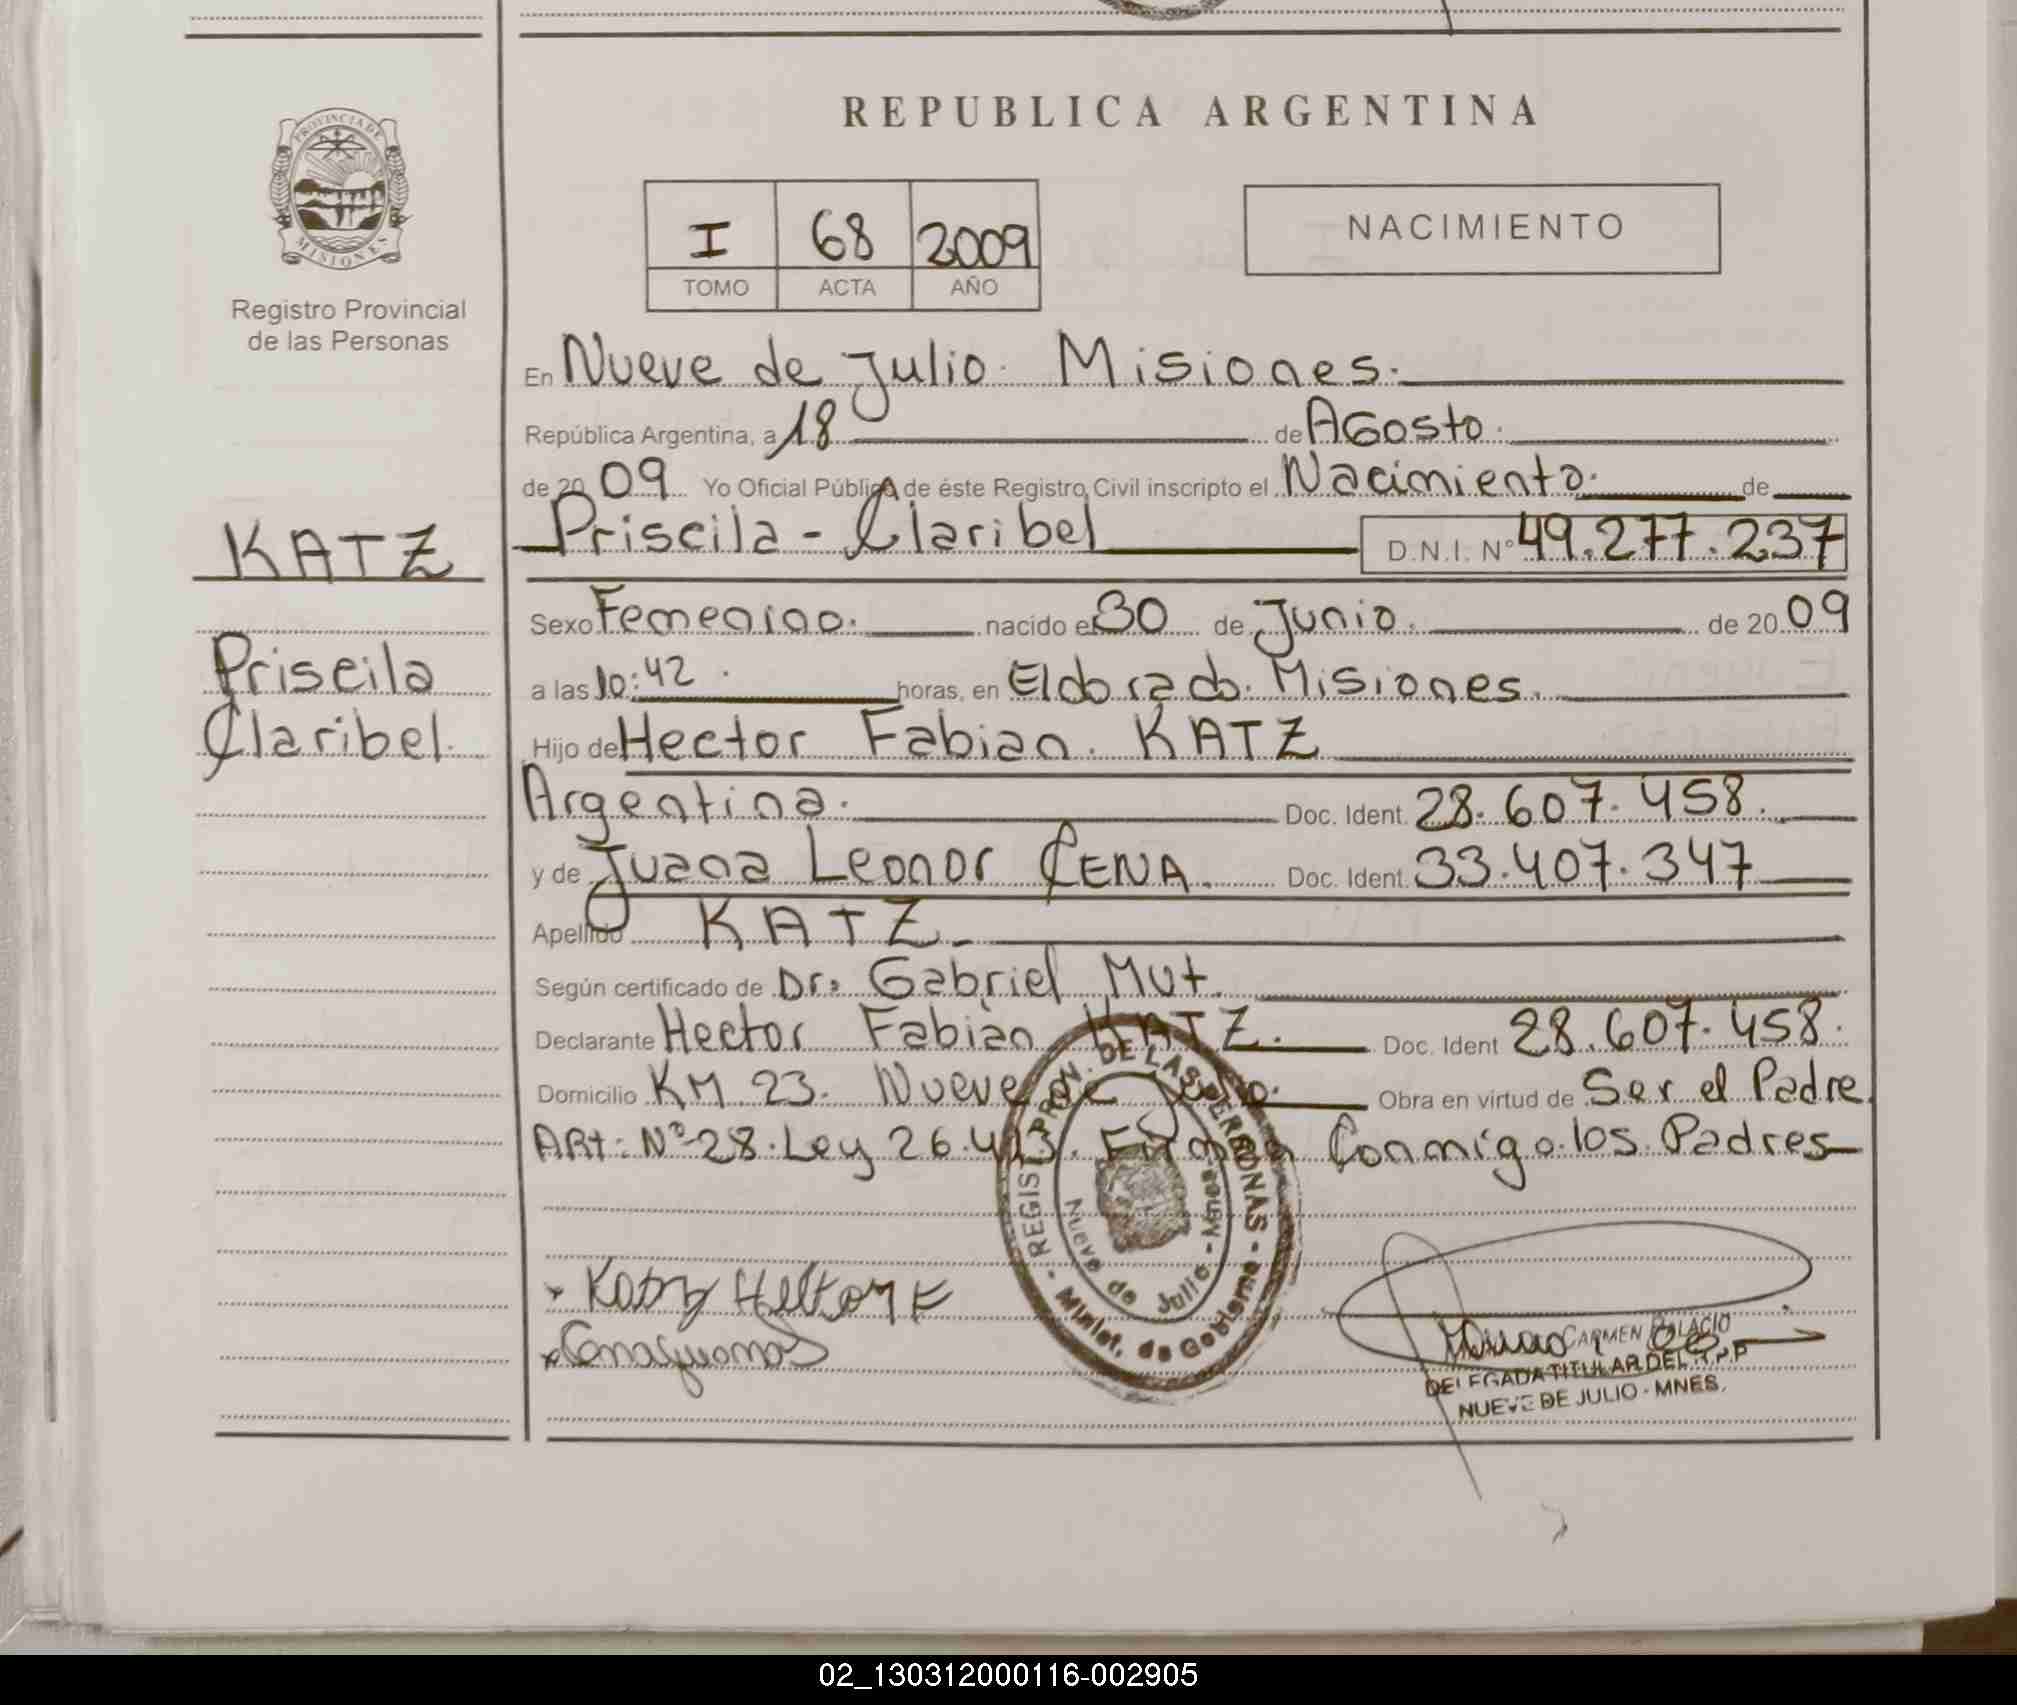 REPUBLICA ARGENTINA
PROVINCIA DE
MISIONES
Registro Provincial
de las Personas
I 68 2009
TOMO ACTA AÑO
NACIMIENTO
En Nueve de Julio. Misiones.
República Argentina, a 18 de AGosto.
de 2009 Yo Oficial Público de éste Registro Civil inscripto el Nacimiento. de
KATZ
Priscila - Claribel D.N.I. Nº 49.277.237
Sexo Femenino. nacido el 30 de Junio. de 2009
Priscila
a las 10:42. horas, en Eldorado. Misiones.
Claribel.
Hijo de Hector Fabian. KATZ
Argentina. Doc. Ident. 28.607.458.
y de Juana Leonor CENA. Doc. Ident. 33.407.347
Apellido KATZ.
Según certificado de Dr: Gabriel Mut.
Declarante Hector Fabián KATZ. Doc. Ident 28.607.458.
Domicilio KM. 23. Nueve de Julio. Obra en virtud de Ser el Padre.
ARt: Nº 28. Ley 26.413. Firman Conmigo los Padres
REGIST. PROV. DE LAS PERSONAS - Minist. de Gobierno -
Nueve de Julio - Mnes.
Katz Hector F
Cena Juana
CARMEN PALACIO
DELEGADA TITULAR DEL R.P.P
NUEVE DE JULIO - MNES.
02_130312000116-002905